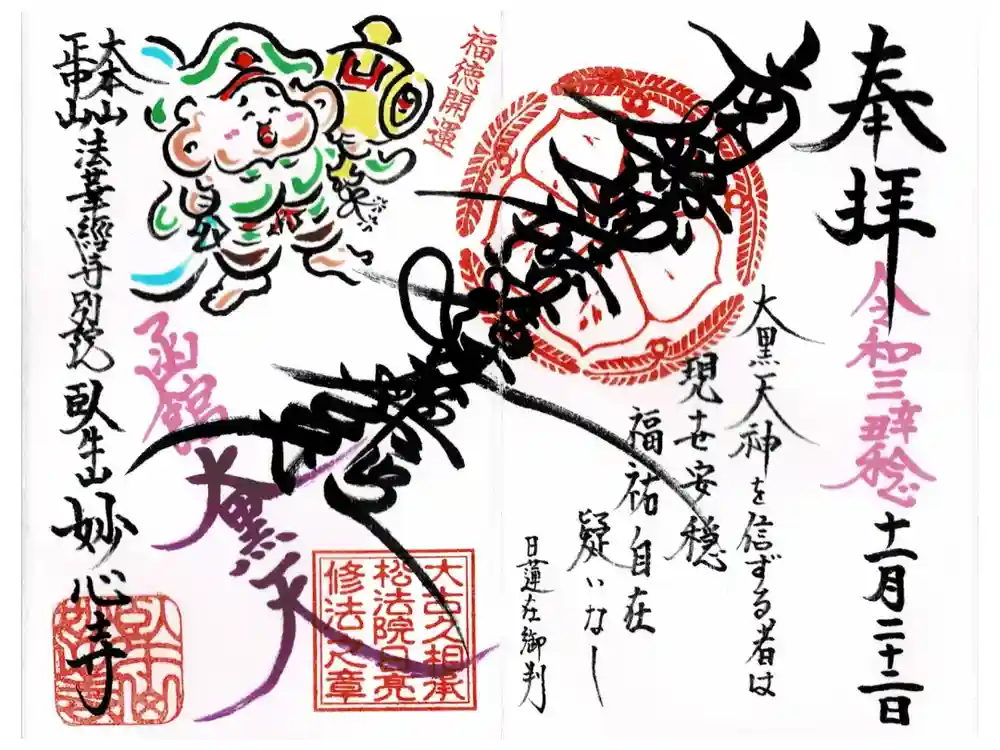 奉拝
令和三辛丑稔
十一月二十二日
大黒天神を信ずる者は
現世安穏
福祐自在
疑いなし
日蓮在御判
南無妙法蓮華経
福徳開運
函館
大黒天
大古久相承
松法院日亮
修法之章
大本山
正中山
法華經寺別院
臥牛山
妙心寺